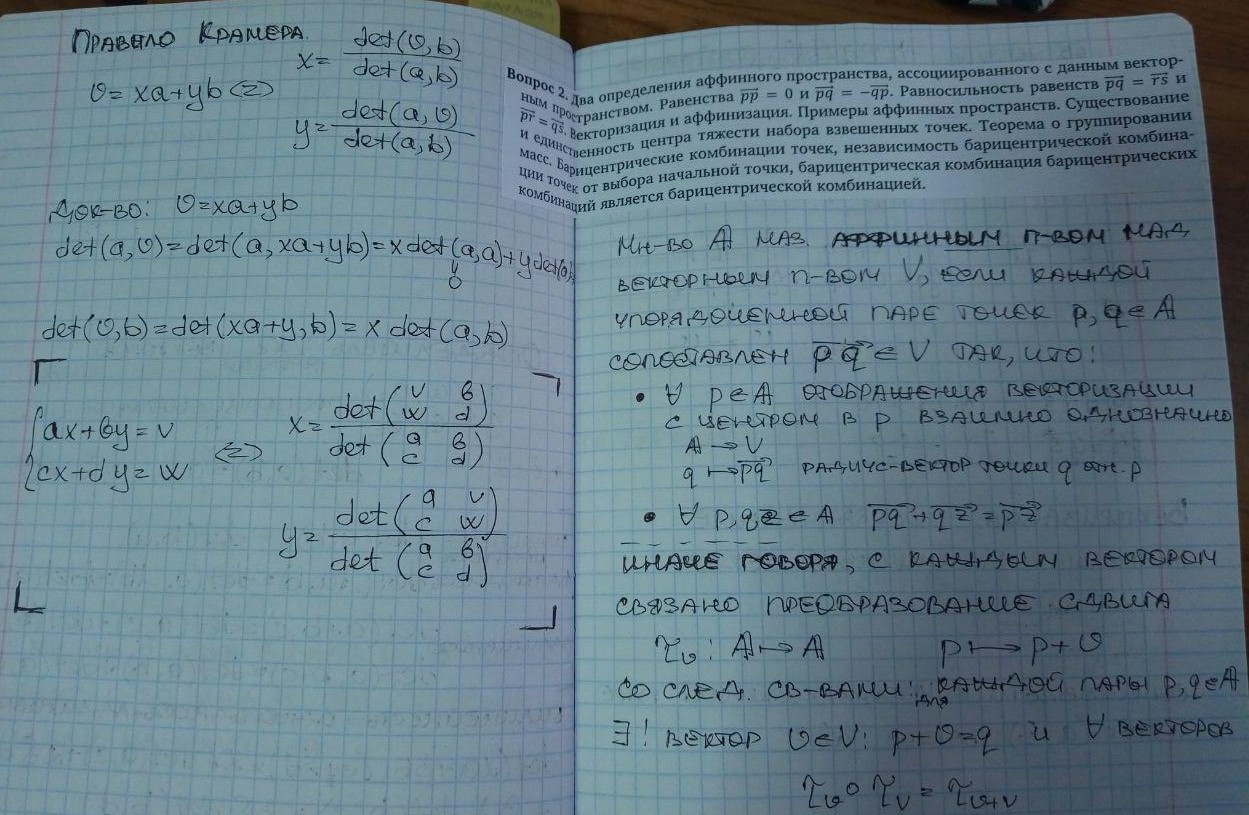 Правило Крамера.
v = xa+yb <=> x = det(v,b) / det(a,b)
y = det(a,v) / det(a,b)
Док-во: v=xa+yb
det(a,v)=det(a,xa+yb)=x det(a,a)+y det(a,b)
0
det(v,b)=det(xa+y,b)=x det(a,b)
{ ax+by=v
{ cx+dy=w
<=>
x = det(v b / w d) / det(a b / c d)
y = det(a v / c w) / det(a b / c d)
Вопрос 2. Два определения аффинного пространства, ассоциированного с данным вектор-
ным пространством. Равенства pp = 0 и pq = −qp. Равносильность равенств pq = rs и
pr = qs. Векторизация и аффинизация. Примеры аффинных пространств. Существование
и единственность центра тяжести набора взвешенных точек. Теорема о группировании
масс. Барицентрические комбинации точек, независимость барицентрической комбина-
ции точек от выбора начальной точки, барицентрическая комбинация барицентрических
комбинаций является барицентрической комбинацией.
Мн-во A наз. аффинным п-вом над
векторным п-вом V, если каждой
упорядоченной паре точек p, q ∈ A
сопоставлен pq ∈ V так, что:
• ∀ p ∈ A отображения векторизации
с центром в p взаимно однозначно
A → V
q ↦ pq радиус-вектор точки q отн. p
• ∀ p,q,z ∈ A pq+qz=pz
иначе говоря, с каждым вектором
связано преобразование сдвига
τv : A ↦ A p ↦ p+v
со след. св-вами: для каждой пары p,q ∈ A
∃! вектор v ∈ V: p+v=q и ∀ векторов
τu ∘ τv = τu+v